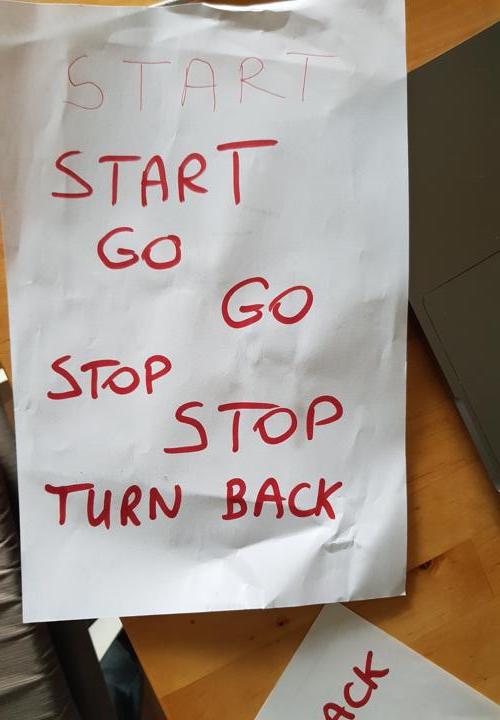 START
START
GO
GO
STOP
STOP
TURN BACK
ACK